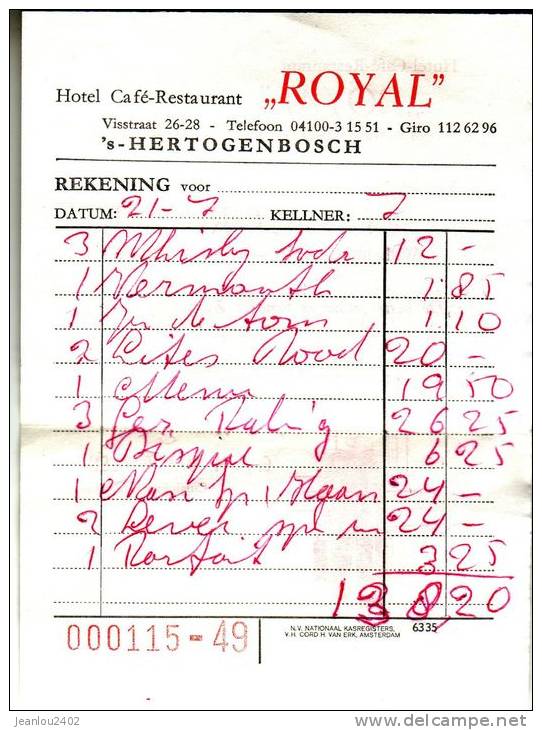 Hotel Café-Restaurant „ROYAL”
Visstraat 26-28 - Telefoon 04100-3 15 51 - Giro 112 62 96
's-HERTOGENBOSCH
REKENING voor
DATUM: 21-7 KELLNER: 7
3 Whisky soda 12 -
1 Vermouth 1 85
1 1 10
2 Rood 20 -
1 Menu 19 50
3 26 25
1 6 25
1 24 -
2 24 -
1 Parfait 3 25
138,20
000115-49
N.V. NATIONAAL KASREGISTERS, 6335
V.H. CORD H. VAN ERK, AMSTERDAM
jeanlou2402
www.delcampe.net